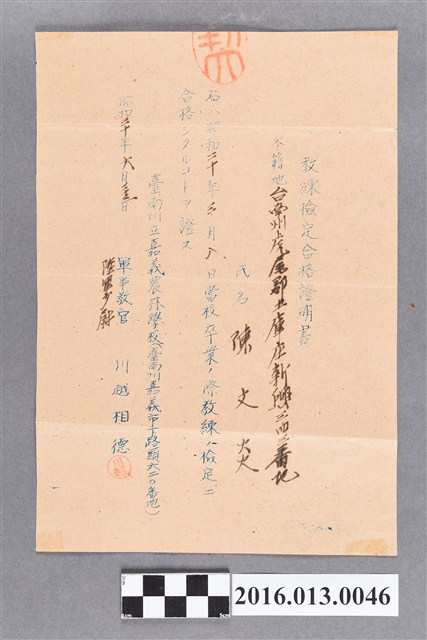 教練檢定合格證明書
本籍地 台南州虎尾郡土庫庄新興三四三番地
氏名 陳文
右ハ昭和二十年三月 日當校卒業ノ際教練ノ檢定ニ
合格シタルコトヲ證ス
昭和二十年六月 日
臺南州立嘉義農林學校(臺南州嘉義市下路頭六二〇番地)
軍事教官 川越相德
陸軍 殿
2016.013.0046